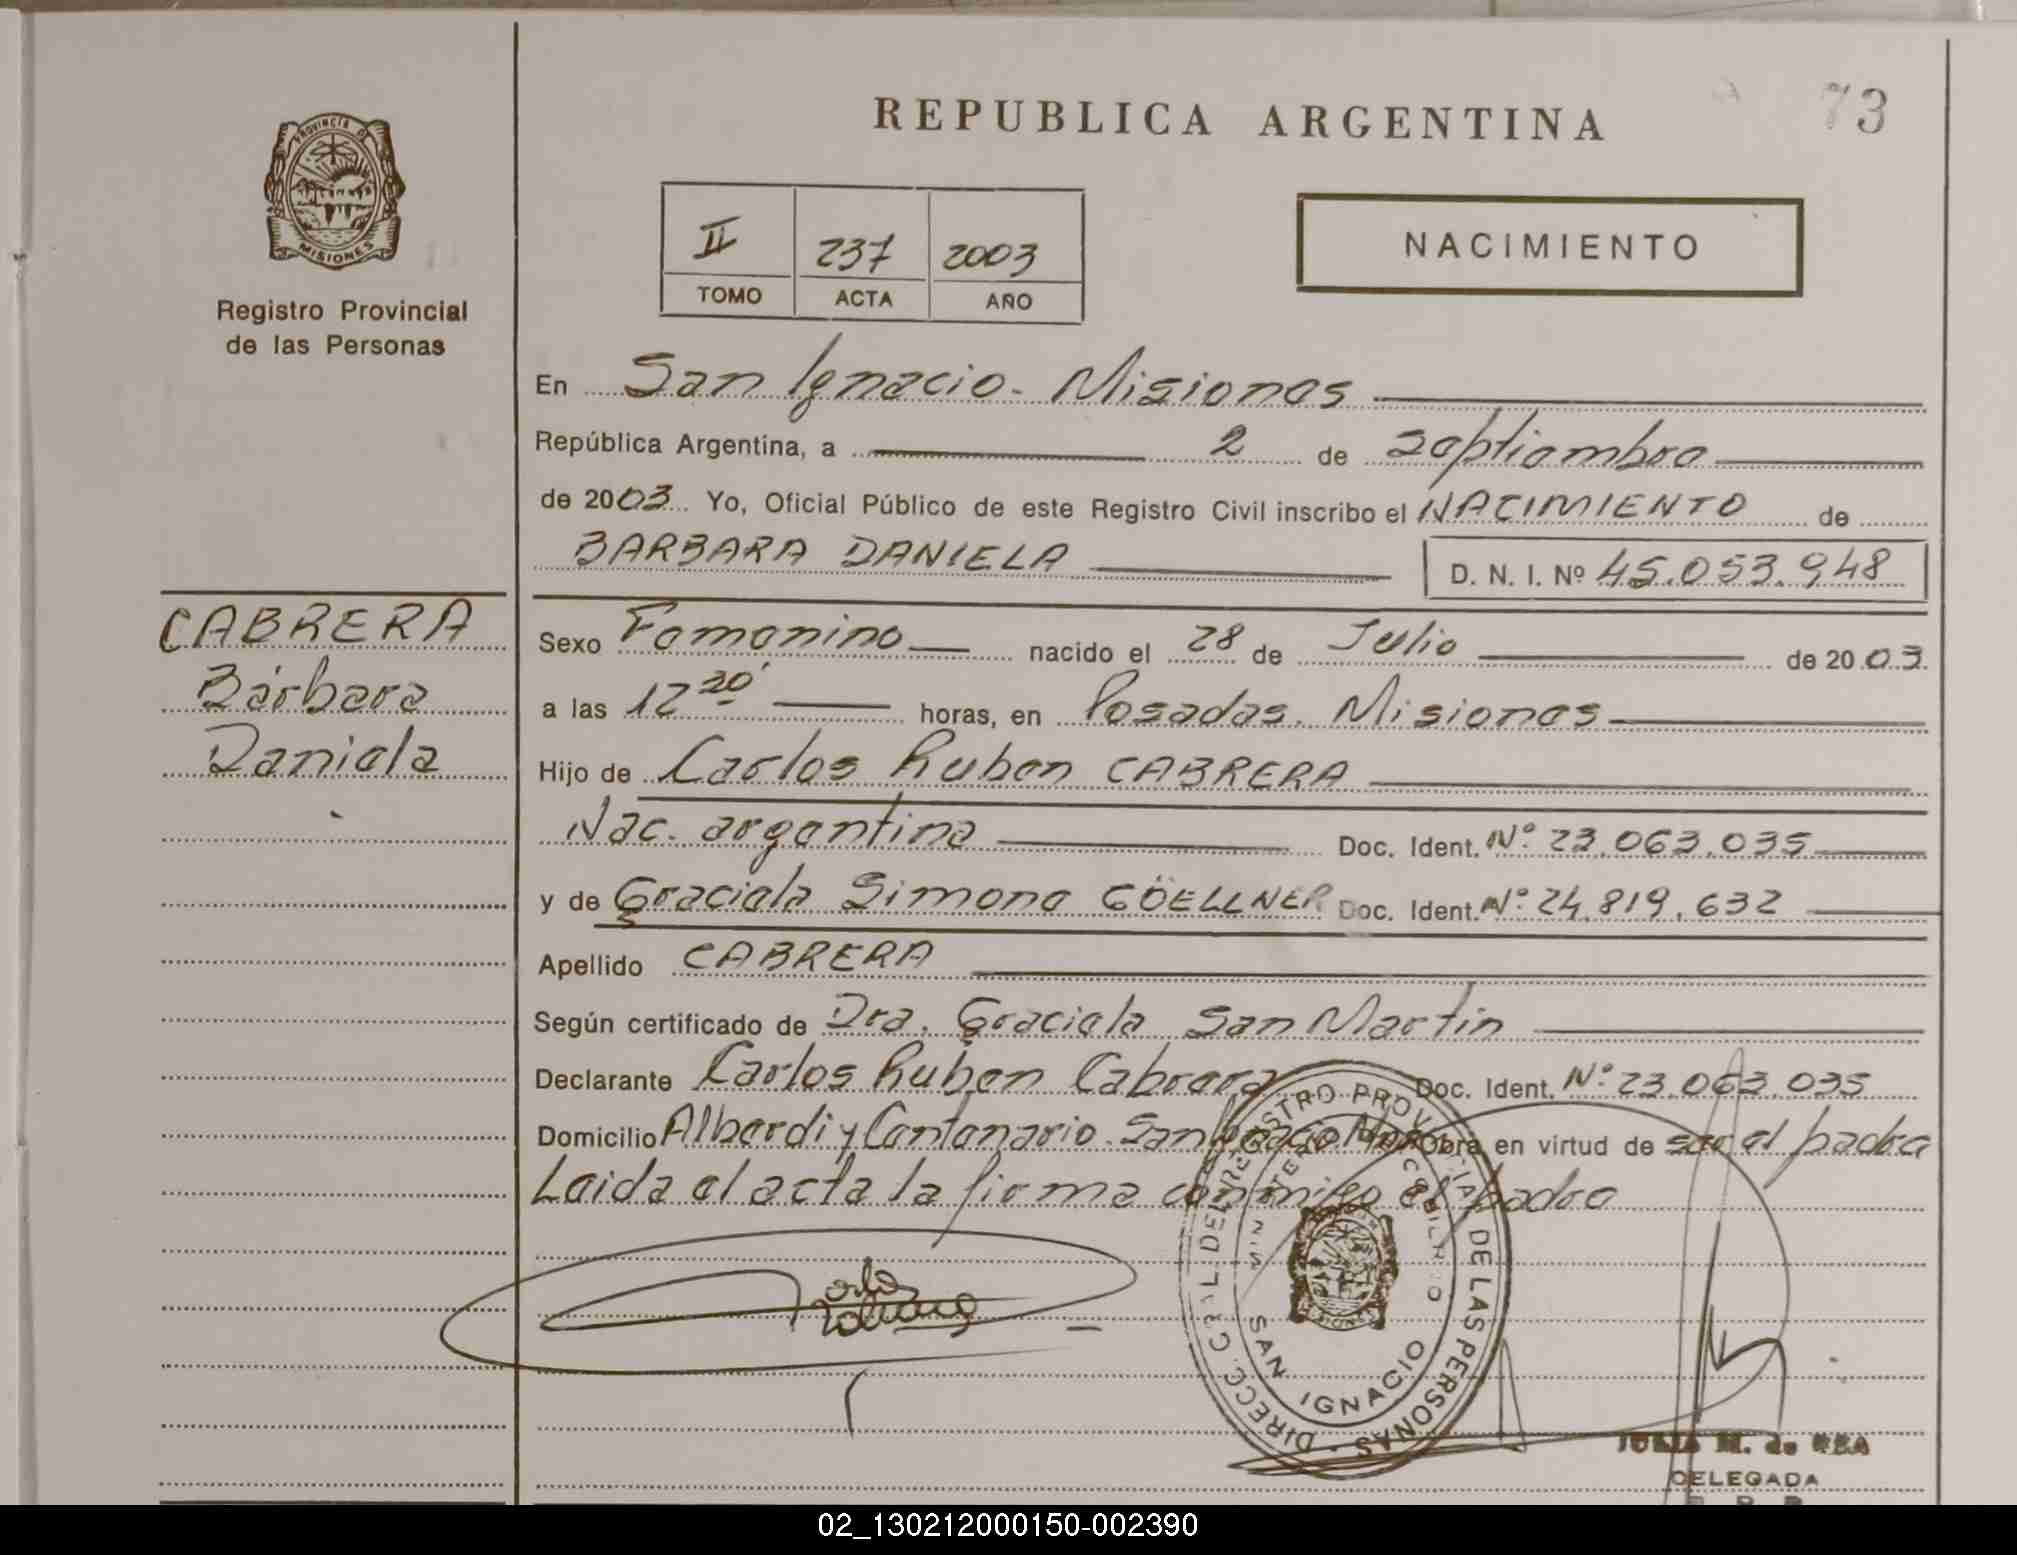 REPUBLICA ARGENTINA
73
PROVINCIA DE
MISIONES
Registro Provincial
de las Personas
II 237 2003
TOMO ACTA AÑO
NACIMIENTO
En San Ignacio - Misiones
República Argentina, a 2 de Septiembre
de 2003 Yo, Oficial Público de este Registro Civil inscribo el NACIMIENTO de
BARBARA DANIELA D. N. I. Nº 45.053.948
CABRERA
Bárbara
Daniela
Sexo Femenino nacido el 28 de Julio de 2003.
a las 12 20' horas, en Posadas. Misiones
Hijo de Carlos Ruben CABRERA
Nac. argentina Doc. Ident. Nº 23.063.035
y de Graciela Simona GÖELLNER Doc. Ident. Nº 24.819.632
Apellido CABRERA
Según certificado de Dra. Graciela San Martin
Declarante Carlos Ruben Cabrera Doc. Ident. Nº 23.063.035
Domicilio Alberdi y Centenario. San Ignacio Obra en virtud de ser el padre
Leida el acta la firma conmigo el padre
DIRECC. GRAL DEL REGISTRO PROVINCIAL DE LAS PERSONAS
SAN IGNACIO
MISIONES
M. de
DELEGADA
02_130212000150-002390